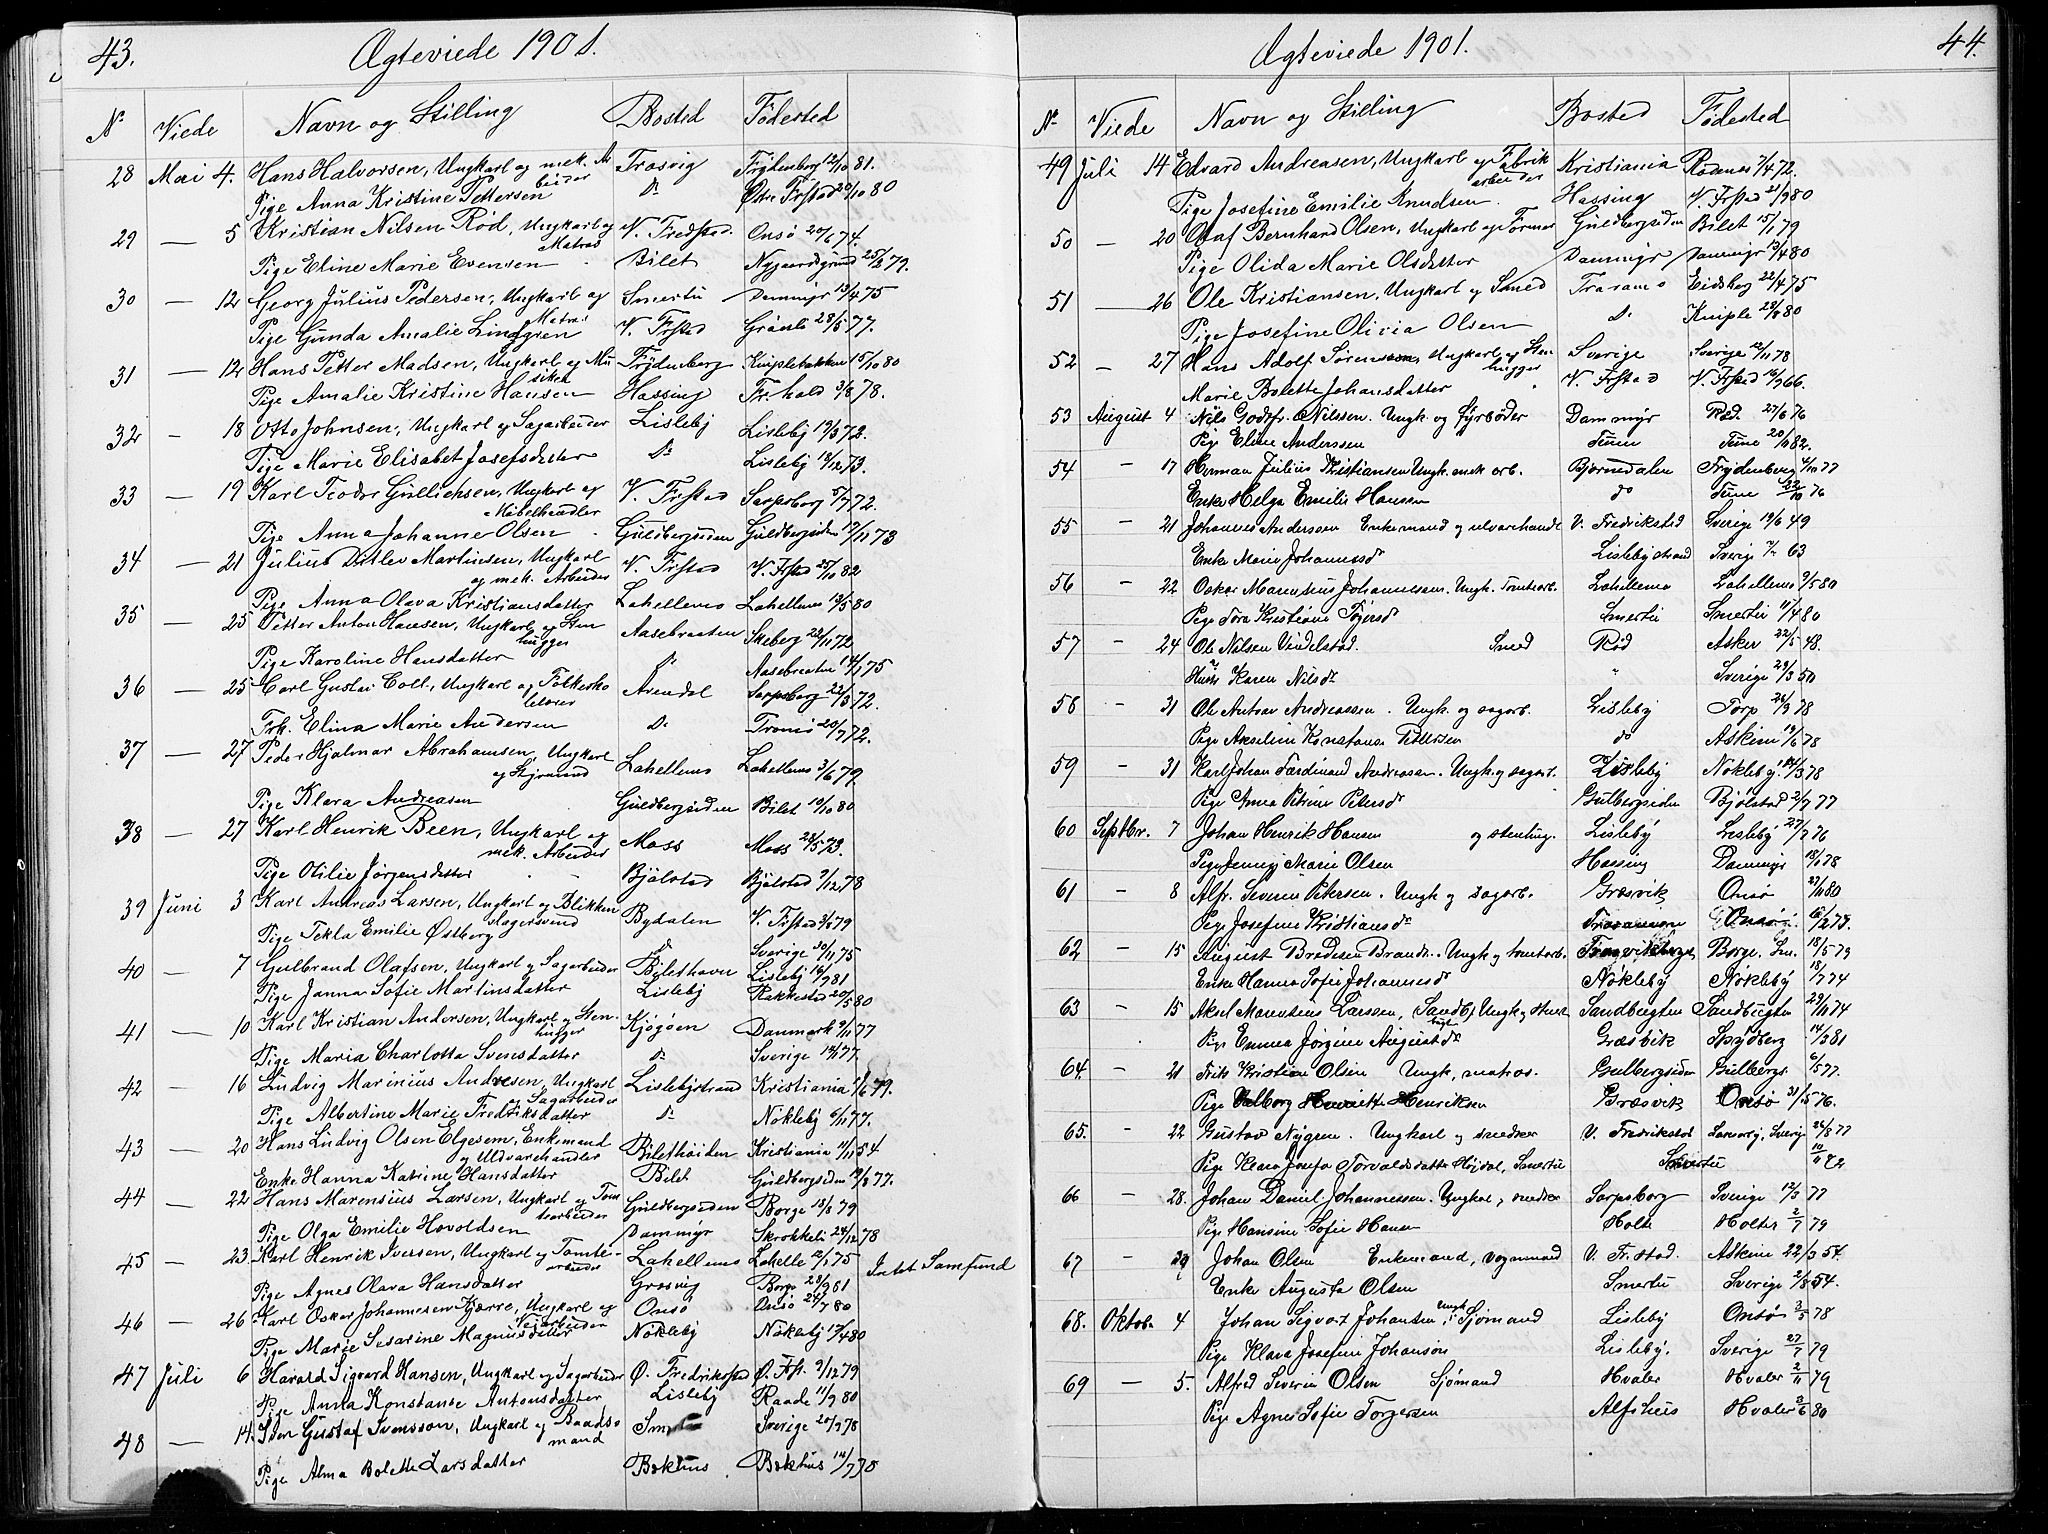 43.
Ægteviede 1901.
No Viede Navn og Stilling Bosted Fødested
28 Mai 4. Hans Halvorsen, Ungkarl og mek. Ar Trosvig Frydenberg 12/10 81.
beider
Pige Anna Kristine Pettersen Do Østre Frstad 20/10 80
29 — 5 Kristian Nilsen Rød, Ungkarl og V. Fredstad. Onsö 20/1 74.
Matros
Pige Eline Marie Evensen Bilet Nygaardsgrund 25/2 79.
30 — 12 Georg Julius Pedersen, Ungkarl og Smertu Dammyr 13/4 75
Matros
Pige Gunda Amalie Lindgren V. Frstad Grönli 28/5 77.
31 — 12 Hans Petter Madsen, Ungkarl og Mu Frydenberg Kniplebakken 15/10 80
siker
Pige Amalie Kristine Hansen Hassing Fr.hald 3/8 78.
32 — 18 Otto Johnsen, Ungkarl og Sagarbeider Lisleby Lisleby 19/3 72.
Pige Marie Elisabet Josefsdatter Do Lisleby 18/12 73.
33 — 19 Karl Teodor Gullichsen, Ungkarl og V. Frstad Sarpsborg 5/7 72.
Möbelhandler
Pige Anna Johanne Olsen Guldbergsiden Guldbergsiden 17/11 73
34 — 21 Julius Ditlev Martinsen, Ungkarl V. Frstad V. Frstad 25/10 82
og mek. Arbeider
Pige Anna Olava Kristiansdatter Lahellemo Lahellemo 18/5 80
35 — 25 Petter Anton Hansen, Ungkarl og Sten Aasebraaten Skeberg 22/11 72
hugger
Pige Karoline Hansdatter Do Aasebraaten 14/1 75
36 — 25 Carl Gustav Coll, Ungkarl og Folkesko Arendal Sarpsborg 22/3 72.
lelærer
Frk. Elina Marie Andersen Do Tromö 20/7 72.
37 — 27 Peder Hjalmar Abrahamsen, Ungkarl Lahellemo Lahellemo 3/6 79
og Styrmand
Pige Klara Andreasen Guldbergsiden Bilet 19/10 80
38 — 27 Karl Henrik Been, Ungkarl og Moss Moss 28/5 73.
mek. Arbeider
Pige Otilie Jørgensdatter Bjölstad Bjölstad 9/12 78
39 Juni 3 Karl Andreas Larsen, Ungkarl og Blikken Bydalen V. Frstad 3/8 79
slagersvend
Pige Tekla Emilie Østberg Do Sverige 30/11 75
40 — 7 Gulbrand Olafsen, Ungkarl og Sagarbeider Bilethavn Lisleby 16/9 81
Pige Janna Sofie Martinsdatter Lisleby Rakkestad 20/5 80
41 — 10 Karl Kristian Andersen, Ungkarl og Sten- Kjøgøen Danmark 9/11 77
hugger
Pige Maria Charlotta Svensdatter Do Sverige 14/1 77.
42 — 16 Ludvig Marinius Andresen, Ungkarl Lislebystrand Kristiania 2/6 79.
og Sagarbeider
Pige Albertine Marie Fredriksdatter Do Nökleby 6/11 77.
43 — 20 Hans Ludvig Olsen Elgesem, Enkemand Bilethöiden Kristiania 11/11 54
og Uldvarehandler
Enke Hanna Katrine Hansdatter Bilet Guldbergsiden 19/8 77.
44 — 22 Hans Marensius Larsen, Ungkarl og Tom Guldbergsiden Borge 18/8 79
tearbeider
Pige Olga Emilie Hovoldsen Dammyr Skrokkeli 24/12 78
45 — 23 Karl Henrik Iversen, Ungkarl og Tomte- Lahellemo Lahelle 12/1 75 Intet Samfund
arbeider
Pige Agnes Olava Hansdatter Gresvig Borge 28/9 81
46 — 26 Karl Oskar Johannesen Kjærre, Ungkarl og Onsö Onsö 24/7 80
Veiarbeider
Pige Marie Sesarine Magnusdatter Nökleby Nökleby 17/4 80
47 Juli 6 Harald Sigvard Hansen, Ungkarl og Sagarbeider Ø. Fredriksstad Ø. Frst. 9/12 79
Pige Anna Konstanse Antonsdatter Lisleby Raade 11/9 80
48 — 14. Sven Gustaf Svensson, Ungkarl og Baads- Sm Sverige 20/9 78
mand
Pige Alma Bolette Larsdatter Bokhus Bokhus 14/7 78
Ægteviede 1901.
44.
No Viede Navn og Stilling Bosted Fødested
49 Juli 14 Edvard Andreasen, Ungkarl og Fabrik Kristiania Rødenes 7/4 72.
arbeider
Pige Josefine Emilie Knudsen. Hassing V. Frstad 21/9 80
50 — 20 Olaf Bernhard Olsen, Ungkarl og Former Guldbergsiden Bilet 15/1 79
Pige Olida Marie Olsdatter Dammyr Dammyr 19/4 80
51 — 26 Ole Kristiansen, Ungkarl og Smed Traramo Eidsberg 22/4 75
Pige Josefine Olivia Olsen Do Kniple 28/8 80
52 — 27 Hans Adolf Sørensen, Ungkarl og Sten Sverige Sverige 12/11 78
hugger
Marie Bolette Johansdatter V. Frstad V. Frstad 16/9 66.
53 August 4 Nils Godtfr. Nilssen. Ungk. og fyrbøder Dammyr Rød. 27/6 76
Pige Eline Anderssen Tune Tune 20/1 82.
54 — 17 Herman Julius Kristiansen Ungk. mek arb. Bjørnedalen Frydenberg 4/10 77
Enke Helga Emilie Hansen do Tune 22/10 76
55 — 21 Johannes Andersson Enkemand og ulvarehandl V. Fredrikstad Sverige 19/6 49
Enke Marie Johannesdr Lislebystrand Sverige 7/1 63
56 — 22 Oskar Marentius Johannessen. Ungk. Tomtearb. Lahellemo Lahellemo 9/5 80
Pige Tora Kristiane Torersdr Smertu Smertu 11/4 80
57 — 24 Ole Nilsen Vindelstad. Smed Rød Asker 22/5 48.
Hustr Karen Nilsdr " Sverige 29/3 50
58 — 31 Ole Antoni Andreassen. Ungk. og sagarb. Lisleby Torp 26/3 78
Pige Akseline Konstanse Pettersen do Askim 19/6 78
59 — 31 Karl Johan Ferdinand Andreasen. Ungk. og sagarb. Lisleby Nökleby 14/3 78
Pige Anna Petrine Petersdr Gulbergsiden Bjölstad 2/9 77
60 Septbr. 7 Johan Henrik Hansen og stenhug. Lisleby Lisleby 27/7 76
Pige Jenny Marie Olsen Hassing Dammyr 18/1 78
61 — 8 Alfr. Severin Petersen. Ungk og sagarb. Græsvik Onsø 27/11 80
Pige Josefine Kristiansdr Traramoen Onsø. 16/2 73.
62 — 15 August Bredesen Brandt. Ungk og tomtarb. Trosvikberget Borge. Sm. 18/5 79
Enke Hanna Sofie Johannesdr Nökleby Nökleby 18/7 74
63 — 15 Aksel Marentius Larssen, Sandby Ungk og Stenh Sandbugten Sandbugten 29/11 74
Pige Emma Jørgine Augustdr Græsvik Spydberg 14/3 81
64. — 21 Frits Kristian Olsen Ungk, matros. Gulbergsiden Gulbergs. 6/5 77.
Pige Valborg Henriette Henriksen Græsvik Onsø 31/5 76.
65. — 22 Gustav Nygren. Ungkarl og snedker V. Fredrikstad Sverig 26/8 77
Pige Klara Josefa Torvaldsdatter Højdal, Smertu Smertu 10/11 72
66 — 28. Johan Daniel Johannessen. Ungkar, snedker Sarpsborg Sverige 12/3 77
Pige Hansine Sofie Hansen Holte Holter 2/7 79
67 — 29 Johan Olsen Enkemand, vognmand V. Fr.stad. Askim 22/3 54.
Enke Augusta Olsen Smertu Sverige 2/8 54.
68. Oktob. 4 Johan Sigvart Johansen, Ungk. Sjømand Lisleby Onsø 3/5 78
Pige Klara Josefine Johanson Lisleby. Sverige 27/7 79
69 — 5. Alfred Severin Olsen Sjømand Hvaler Hvaler 2/11 79
Pige Agnes Sofie Torgersen Alfshus Hvaler 3/6 80